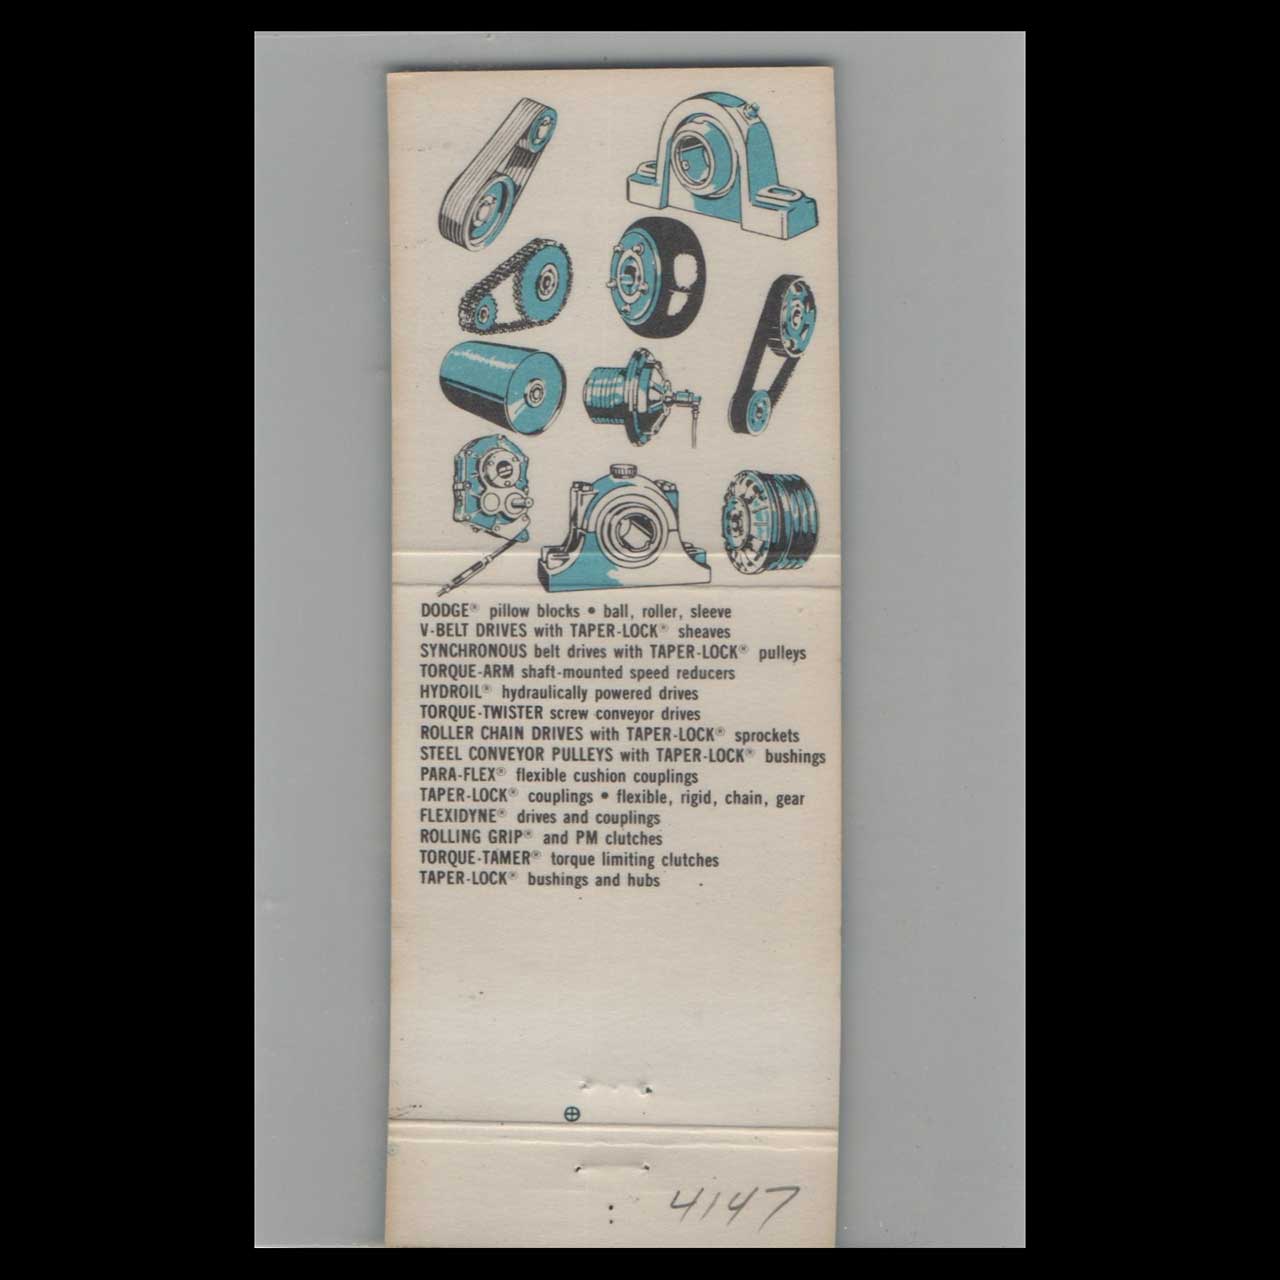 DODGE® pillow blocks • ball, roller, sleeve
V-BELT DRIVES with TAPER-LOCK® sheaves
SYNCHRONOUS belt drives with TAPER-LOCK® pulleys
TORQUE-ARM shaft-mounted speed reducers
HYDROIL® hydraulically powered drives
TORQUE-TWISTER screw conveyor drives
ROLLER CHAIN DRIVES with TAPER-LOCK® sprockets
STEEL CONVEYOR PULLEYS with TAPER-LOCK® bushings
PARA-FLEX® flexible cushion couplings
TAPER-LOCK® couplings • flexible, rigid, chain, gear
FLEXIDYNE® drives and couplings
ROLLING GRIP® and PM clutches
TORQUE-TAMER® torque limiting clutches
TAPER-LOCK® bushings and hubs
4147